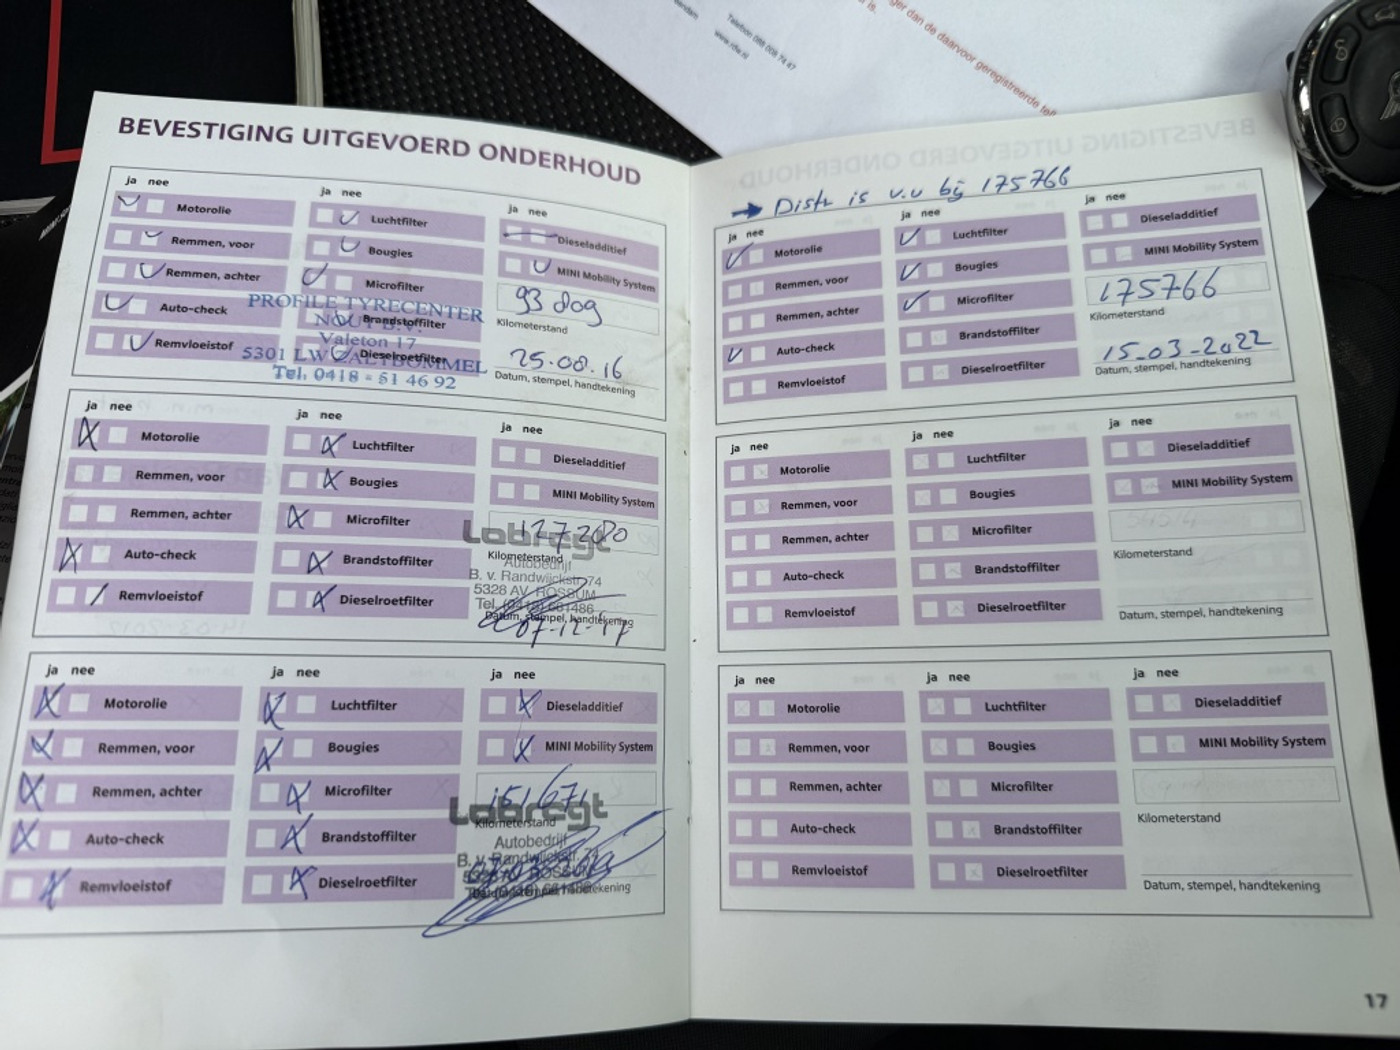 Telefoon 088 008 74 47
www.rdw.nl
ger dan de daarvoor geregistreerde tell
BEVESTIGING UITGEVOERD ONDERHOUD
ja nee
Motorolie
Remmen, voor
Remmen, achter
Auto-check
Remvloeistof
ja nee
Luchtfilter
Bougies
Microfilter
Brandstoffilter
Dieselroetfilter
ja nee
Dieseladditief
MINI Mobility System
93 809
Kilometerstand
25-08-16
Datum, stempel, handtekening
PROFILE TYRECENTER
NOUT B.V.
Valeton 17
5301 LW ZALTBOMMEL
Tel. 0418 - 51 46 92
ja nee
Motorolie
Remmen, voor
Remmen, achter
Auto-check
Remvloeistof
ja nee
Luchtfilter
Bougies
Microfilter
Brandstoffilter
Dieselroetfilter
ja nee
Dieseladditief
MINI Mobility System
Kilometerstand
Labregt
Autobedrijf
B. v. Randwijckstr. 74
5328 AV ROSSUM
Datum, stempel, handtekening
07-12-17
ja nee
Motorolie
Remmen, voor
Remmen, achter
Auto-check
Remvloeistof
ja nee
Luchtfilter
Bougies
Microfilter
Brandstoffilter
Dieselroetfilter
ja nee
Dieseladditief
MINI Mobility System
151671
Labregt
Kilometerstand
Autobedrijf
B. v. Randwijckstr.
ROSSUM
handtekening
→ Distr is v.v bij 175766
ja nee
Motorolie
Remmen, voor
Remmen, achter
Auto-check
Remvloeistof
ja nee
Luchtfilter
Bougies
Microfilter
Brandstoffilter
Dieselroetfilter
ja nee
Dieseladditief
MINI Mobility System
175766
Kilometerstand
15-03-2022
Datum, stempel, handtekening
ja nee
Motorolie
Remmen, voor
Remmen, achter
Auto-check
Remvloeistof
ja nee
Luchtfilter
Bougies
Microfilter
Brandstoffilter
Dieselroetfilter
ja nee
Dieseladditief
MINI Mobility System
Kilometerstand
Datum, stempel, handtekening
ja nee
Motorolie
Remmen, voor
Remmen, achter
Auto-check
Remvloeistof
ja nee
Luchtfilter
Bougies
Microfilter
Brandstoffilter
Dieselroetfilter
ja nee
Dieseladditief
MINI Mobility System
Kilometerstand
Datum, stempel, handtekening
17